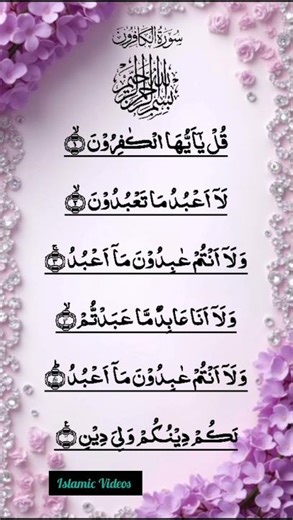 سورة الكافرون
بسم الله الرحمن الرحيم
قُلْ يٰۤاَيُّهَا الْكٰفِرُوْنَ ۙ﴿۱﴾
لَاۤ اَعْبُدُ مَا تَعْبُدُوْنَ ۙ﴿۲﴾
وَلَاۤ اَنْتُمْ عٰبِدُوْنَ مَاۤ اَعْبُدُ ۚ﴿۳﴾
وَلَاۤ اَنَا عَابِدٌ مَّا عَبَدْتُّمْ ۙ﴿۴﴾
وَلَاۤ اَنْتُمْ عٰبِدُوْنَ مَاۤ اَعْبُدُ ؕ﴿۵﴾
لَكُمْ دِيْنُكُمْ وَلِيَ دِيْنِ ﴿۶﴾
Islamic Videos